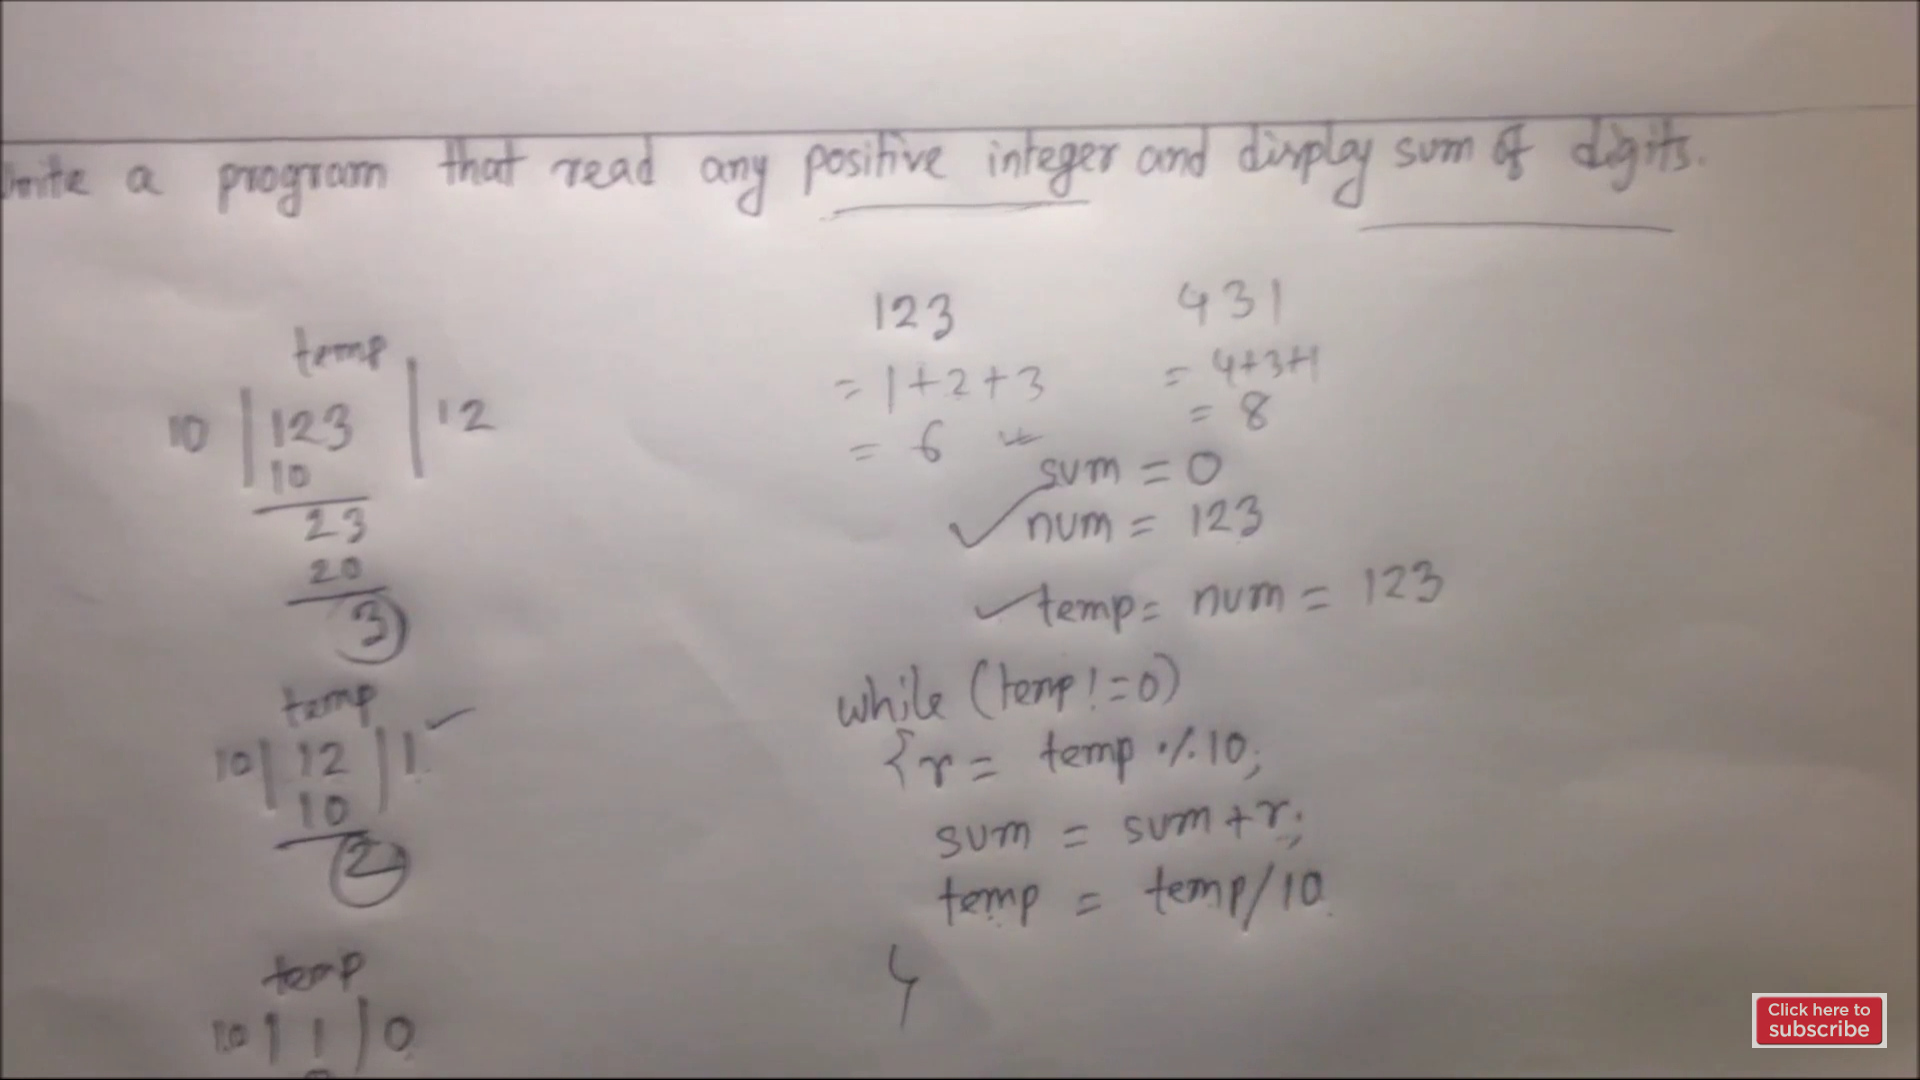 write a program that read any positive integer and display sum of digits.
temp
10 | 123 | 12
10
23
20
3
temp
10 | 12 | 1
10
2
temp
10 | 1 | 0
123
= 1+2+3
= 6
431
= 4+3+1
= 8
sum = 0
num = 123
temp = num = 123
while (temp != 0)
{ r = temp % 10;
sum = sum + r;
temp = temp/10
}
Click here to
subscribe